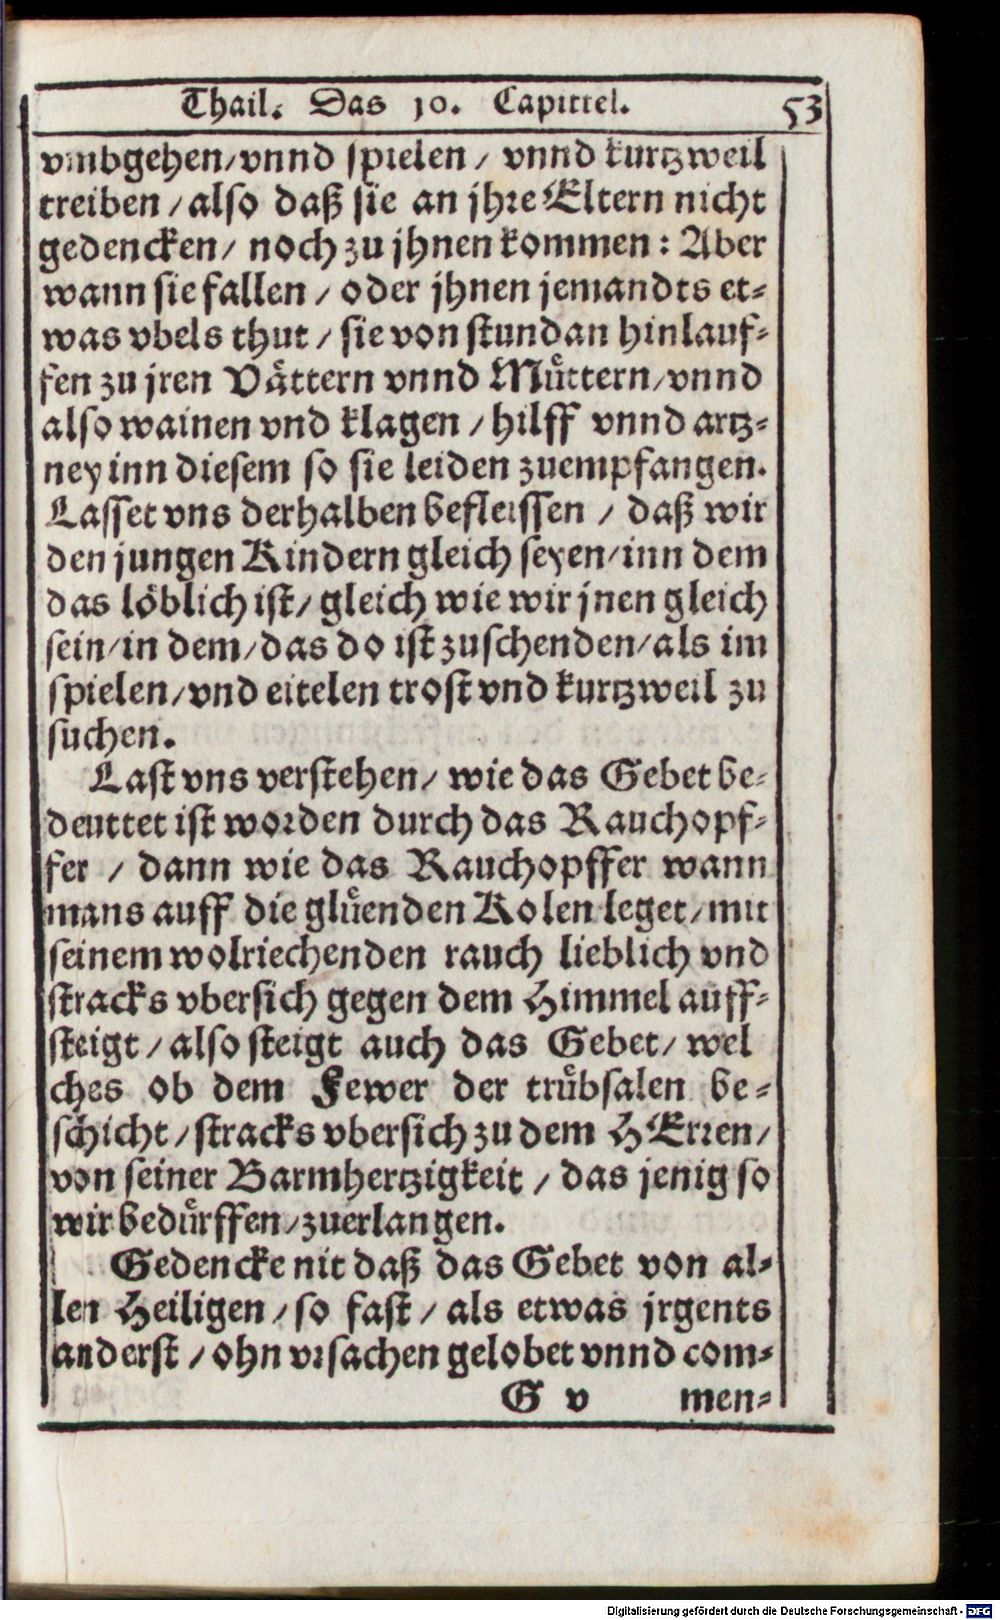 Thail. Das 10. Capittel. 53
vmbgehen/vnnd spielen / vnnd kurtzweil
treiben / also daß sie an jhre Eltern nicht
gedencken / noch zu jhnen kommen: Aber
wann sie fallen / oder jhnen jemandts et⸗
was vbels thut / sie von stund an hinlauf⸗
fen zu jren Vättern vnnd Müttern/vnnd
also wainen vnd klagen / hilff vnnd artz⸗
ney inn diesem so sie leiden zuempfangen.
Lasset vns derhalben befleissen / daß wir
den jungen Kindern gleich seyen/inn dem
das löblich ist/ gleich wie wir jnen gleich
sein/in dem/das do ist zuschenden/als im
spielen/vnd eitelen trost vnd kurtzweil zu
suchen.
Last vns verstehen/ wie das Gebet be⸗
deuttet ist worden durch das Rauchopf⸗
fer / dann wie das Rauchopffer wann
mans auff die glüenden Kolen leget/mit
seinem wolriechenden rauch lieblich vnd
stracks vbersich gegen dem Himmel auff⸗
steigt / also steigt auch das Gebet/ wel
ches ob dem Fewer der trübsalen be⸗
schicht / stracks vbersich zu dem HErren/
von seiner Barmhertzigkeit / das jenig so
wir bedürffen/zuerlangen.
Gedencke nit daß das Gebet von al⸗
len Heiligen / so fast / als etwas jrgents
anderst / ohn vrsachen gelobet vnnd com⸗
G v men⸗
Digitalisierung gefördert durch die Deutsche Forschungsgemeinschaft - DFG